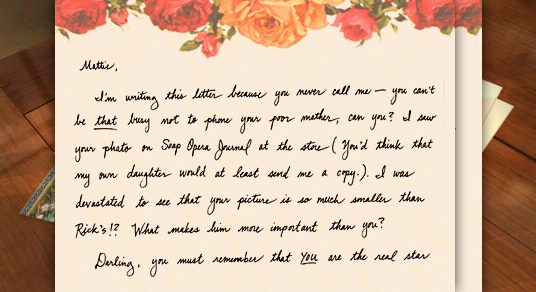 Mattie,
I'm writing this letter because you never call me — you can't
be that busy not to phone your poor mother, can you? I saw
your photo on Soap Opera Journal at the store (You'd think that
my own daughter would at least send me a copy.). I was
devastated to see that your picture is so much smaller than
Rick's!? What makes him more important than you?
Darling, you must remember that YOU are the real star